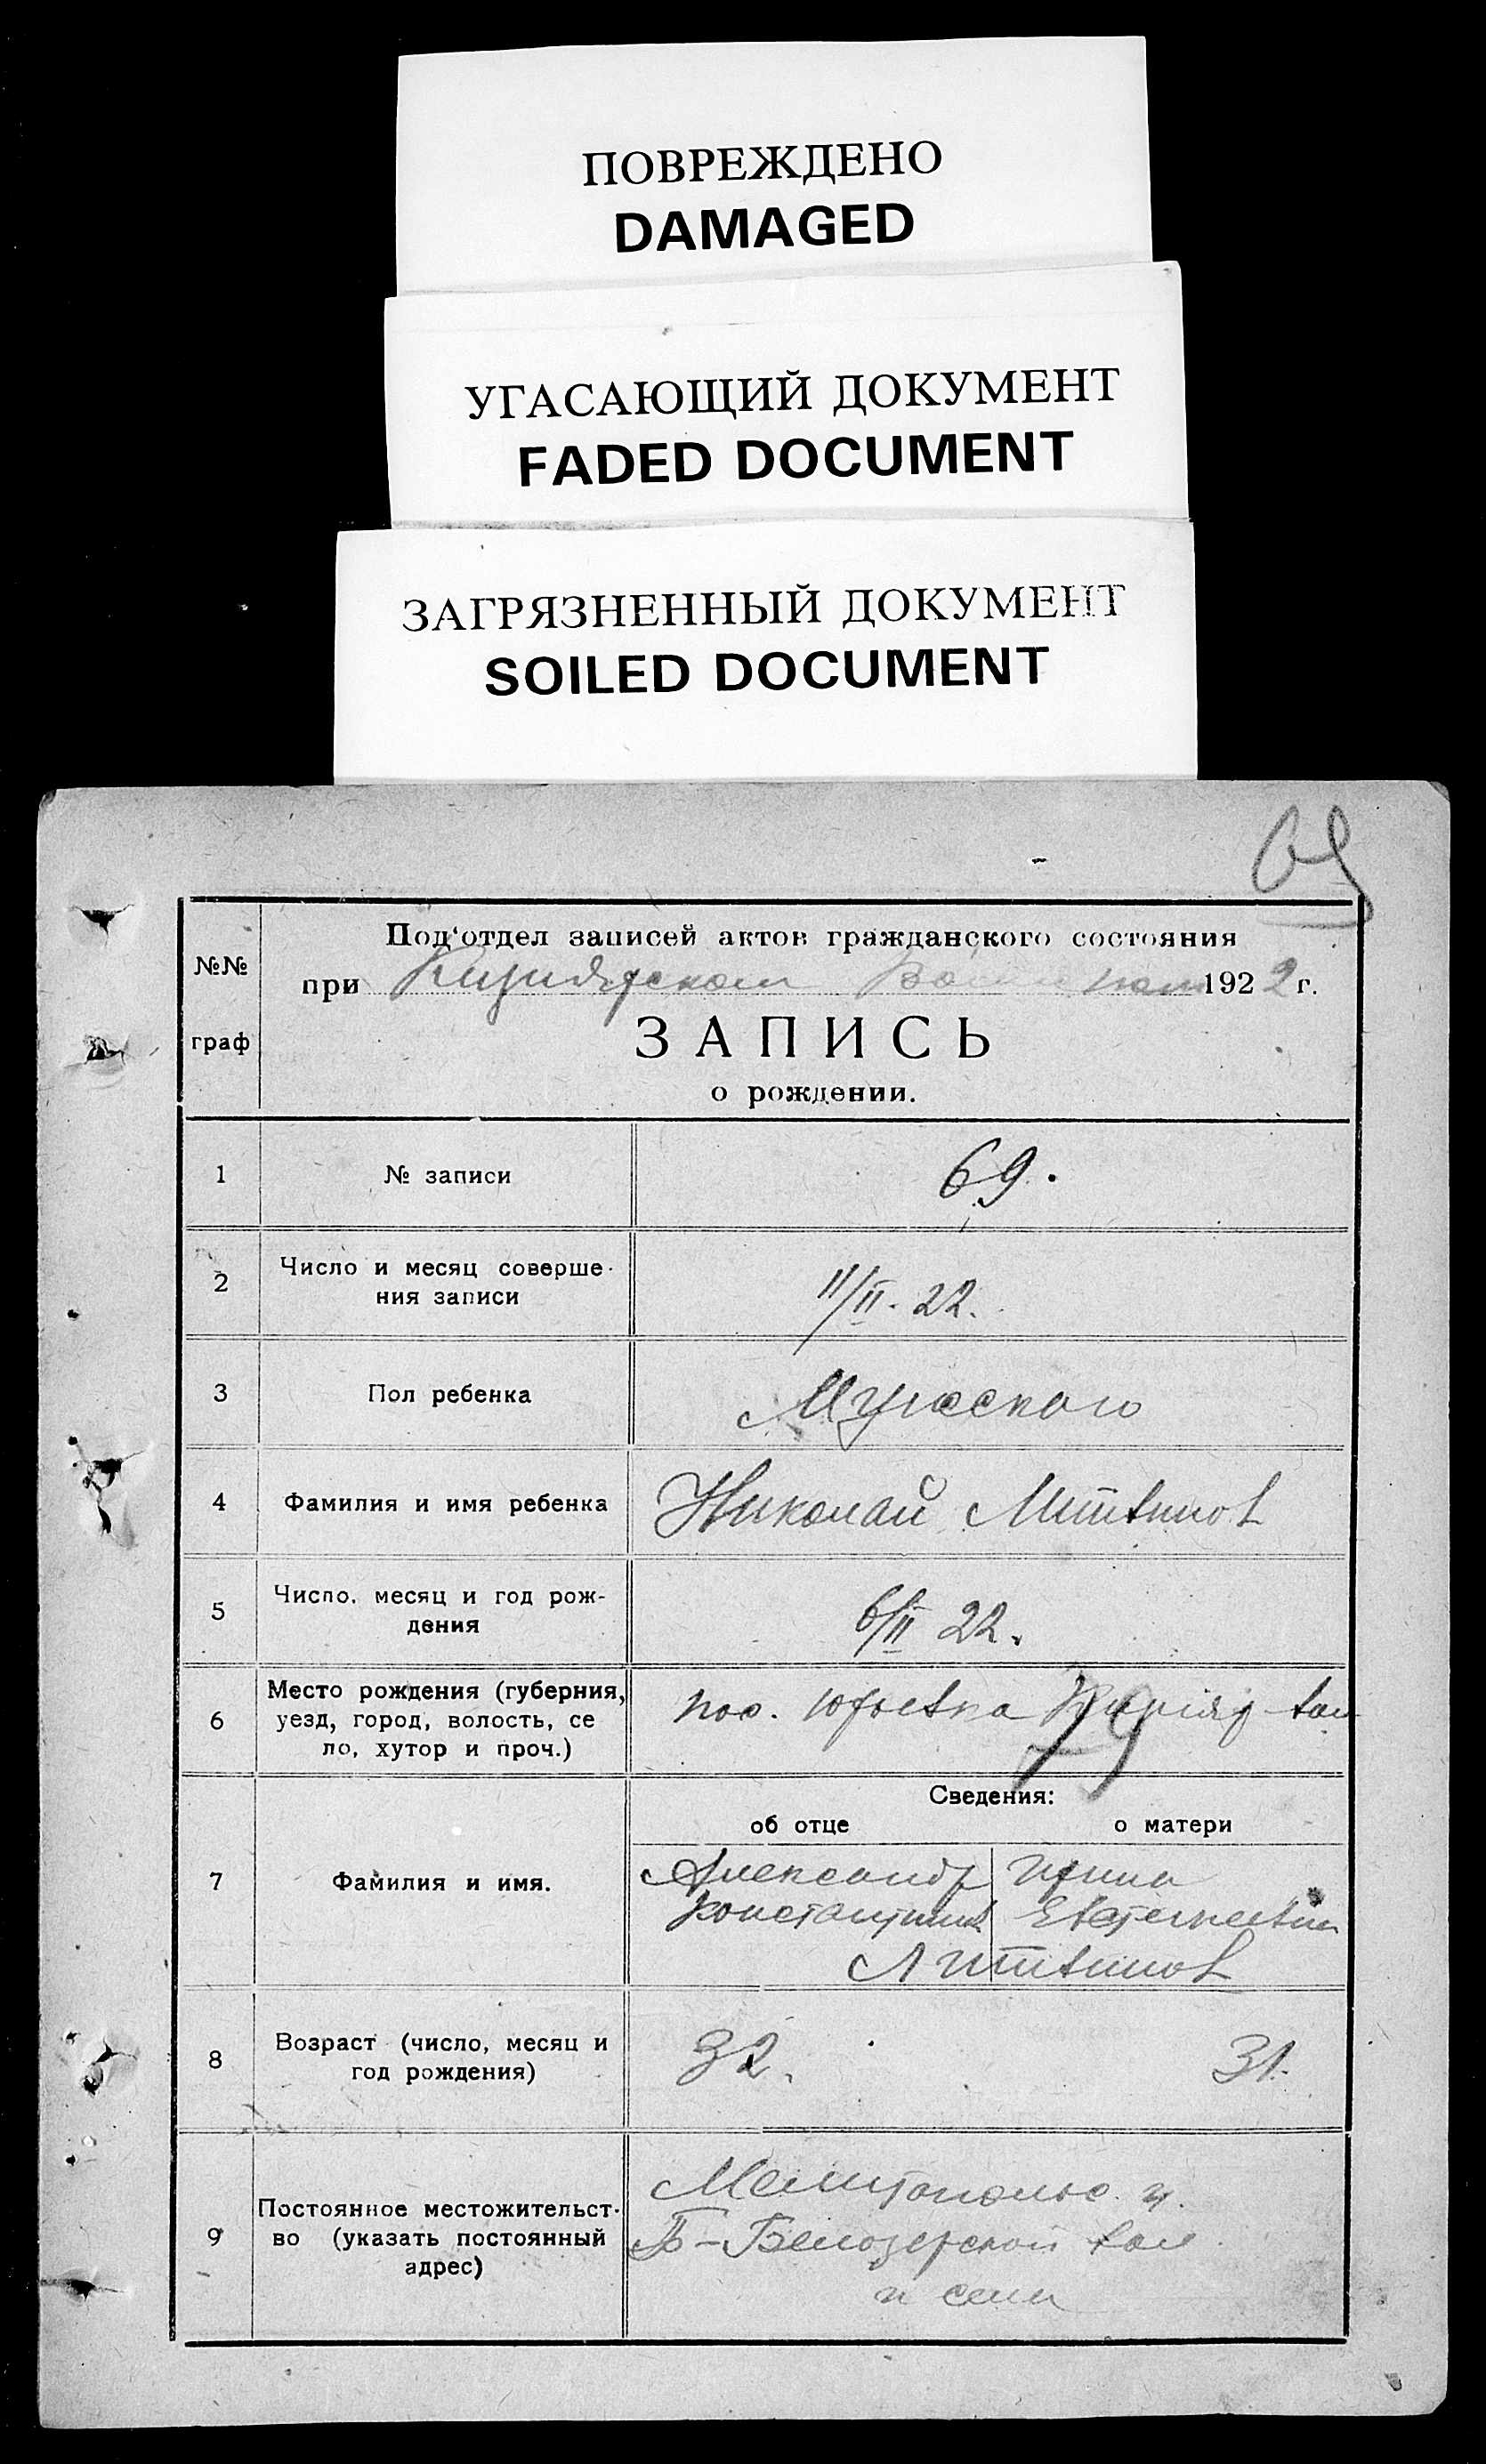 ПОВРЕЖДЕНО
DAMAGED
УГАСАЮЩИЙ ДОКУМЕНТ
FADED DOCUMENT
ЗАГРЯЗНЕННЫЙ ДОКУМЕНТ
SOILED DOCUMENT
69
№№ граф
Под'отдел записей актов гражданского состояния
при Кизиярском 1922 г.
ЗАПИСЬ
о рождении.
1 № записи 69.
2 Число и месяц соверше-
ния записи 11/II. 22.
3 Пол ребенка Мужского
4 Фамилия и имя ребенка Николай Литвинов
5 Число, месяц и год рож-
дения 6/II 22.
6 Место рождения (губерния,
уезд, город, волость, се
ло, хутор и проч.) пос. Юрьевка Кизияр вол
79
Сведения:
об отце о матери
7 Фамилия и имя.
Александр Ирина
Константинов
Литвинов
8 Возраст (число, месяц и
год рождения) 32. 31.
9 Постоянное местожительст-
во (указать постоянный
адрес)
Мелитопольс. у.
Б-Белозерской вол
и села